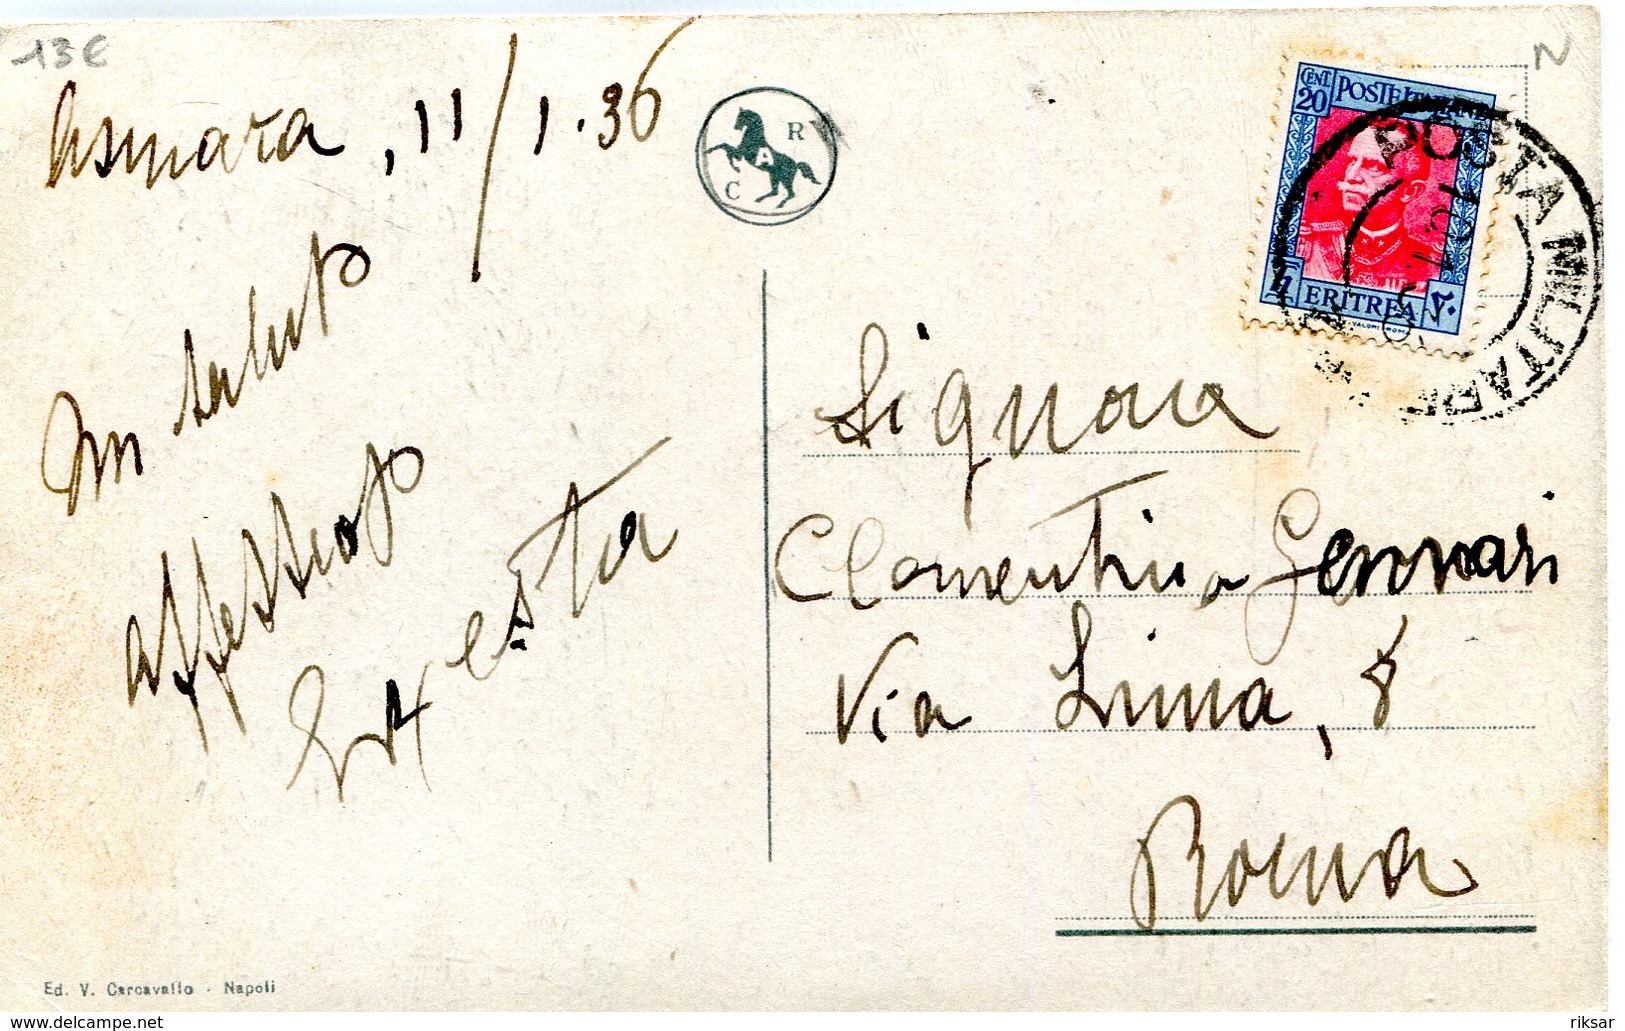 13€
N
Asmara, 11/1.36
R
A
C
Un saluto
affettuoso
CENT 20 POSTE ITALIANE
ERITREA ٢٠
POSTA MILITARE
Signora
Clementina Gennari
Via Lima, 8
Roma
Ed. V. Carcavallo - Napoli
www.delcampe.net
riksar